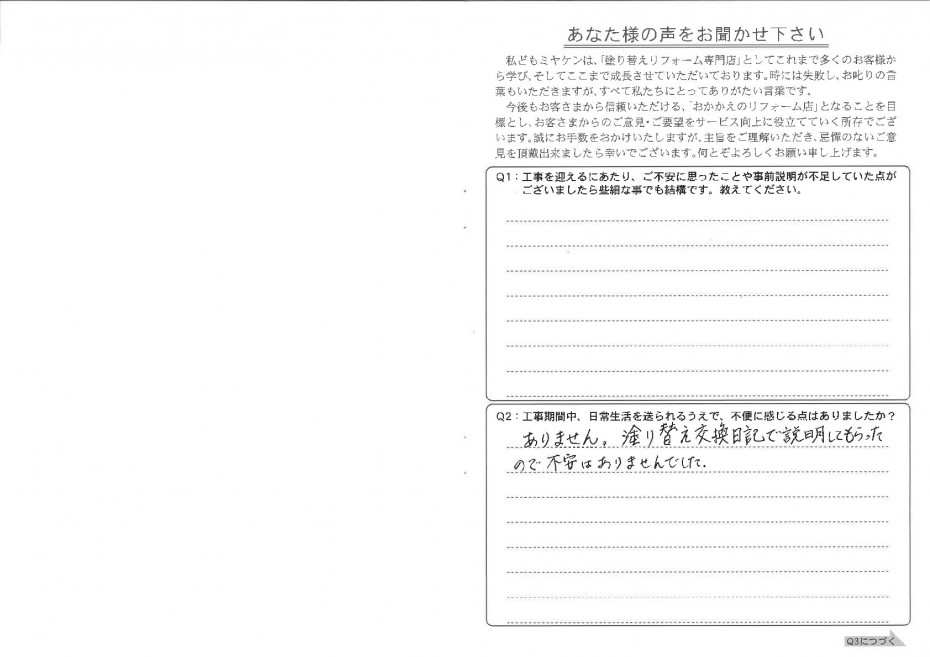 あなた様の声をお聞かせ下さい
私どもミヤケンは、「塗り替えリフォーム専門店」としてこれまで多くのお客様か
ら学び、そしてここまで成長させていただいております。時には失敗し、お叱りの言
葉もいただきますが、すべて私たちにとってありがたい言葉です。
今後もお客さまから信頼いただける、「おかかえのリフォーム店」となることを目
標とし、お客さまからのご意見・ご要望をサービス向上に役立てていく所存でござ
います。誠にお手数をおかけいたしますが、主旨をご理解いただき、忌憚のないご意
見を頂戴出来ましたら幸いでございます。何とぞよろしくお願い申し上げます。
Q1：工事を迎えるにあたり、ご不安に思ったことや事前説明が不足していた点が
ございましたら些細な事でも結構です。教えてください。
Q2：工事期間中、日常生活を送られるうえで、不便に感じる点はありましたか？
ありません。塗り替え交換日記で説明してもらった
ので不安はありませんでした.
Q3につづく